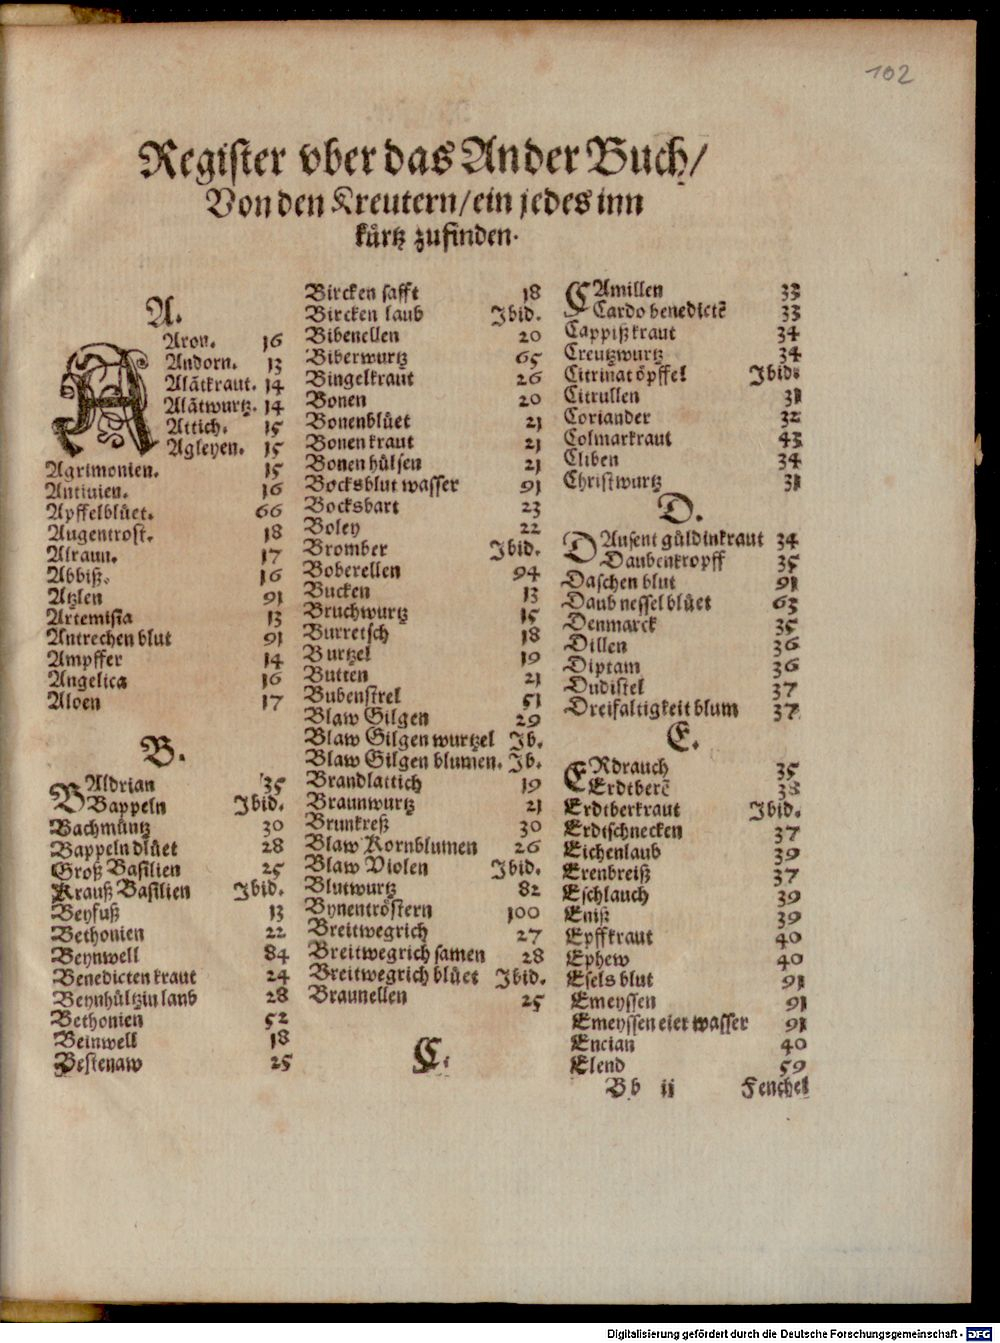 102
Register vber das Ander Buch/
Von den Kreutern/ein jedes inn
kuͤrtz zufinden.
A.
Aron. 16
Andorn. 13
Alātkraut. 14
Alātwurtz. 14
Attich. 15
Agleyen. 15
Agrimonien. 15
Antiuien. 16
Apffelbluͤet. 66
Augentrost. 18
Alraun. 17
Abbiß. 16
Atzlen 91
Artemisia 13
Antrechen blut 91
Ampffer 14
Angelica 16
Aloen 17
B.
BAldrian 35
Bappeln Ibid.
Bachmuͤntz 30
Bappeln bluͤet 28
Groß Basilien 25
Krauß Basilien Ibid.
Beyfuß 13
Bethonien 22
Beynwell 84
Benedicten kraut 24
Beynhuͤltzin laub 28
Bethonien 52
Beinwell 18
Bestenaw 25
Bircken safft 18
Bircken laub Ibid.
Bibenellen 20
Biberwurtz 65
Bingelkraut 26
Bonen 20
Bonenbluͤet 21
Bonen kraut 21
Bonen huͤlsen 21
Bocksblut wasser 91
Bocksbart 23
Boley 22
Bromber Ibid.
Boberellen 94
Bucken 13
Bruchwurtz 15
Burretsch 18
Burtzel 19
Butten 21
Bubenstrel 51
Blaw Gilgen 29
Blaw Gilgen wurtzel Ib.
Blaw Gilgen blumen. Ib.
Brandlattich 19
Braunwurtz 21
Brunkreß 30
Blaw Kornblumen 26
Blaw Violen Ibid.
Blutwurtz 82
Bynentroͤstern 100
Breitwegrich 27
Breitwegrich samen 28
Breitwegrich bluͤet Ibid.
Braunellen 25
C.
CAmillen 33
Cardo benedictē 33
Cappißkraut 34
Creutzwurtz 34
Citrinatoͤpffel Ibid.
Citrullen 31
Coriander 32
Colmarkraut 43
Cliben 34
Christwurtz 31
D.
DAusent guͤldinkraut 34
Daubenkropff 35
Daschen blut 91
Daub nessel bluͤet 63
Denmarck 35
Dillen 36
Diptam 36
Dudistel 37
Dreifaltigkeit blum 37
E.
ERdrauch 35
Erdtberē 38
Erdtberkraut Ibid.
Erdtschnecken 37
Eichenlaub 39
Erenbreiß 37
Eschlauch 39
Eniß 39
Epffkraut 40
Ephew 40
Esels blut 91
Emeyssen 91
Emeyssen eier wasser 91
Encian 40
Elend 59
Bb ij Fenchel
Digitalisierung gefördert durch die Deutsche Forschungsgemeinschaft - DFG